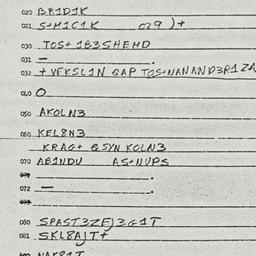 020 B.R1D1K
021 S+M1C1K 029 ) +
030 TOS+ 1835HEMD
031 — .
032 + VFKSL1N QAP TOS+NANAND3R1 ZA
040 O
050 AKOLN3
060 KEL8N3
KRAG+ QSYN KOLN3
070 AB1NDU AS+NUPS
071 .
072 — .
073
080 SPAST3ZF)3G1T
081 SKL8AJT+